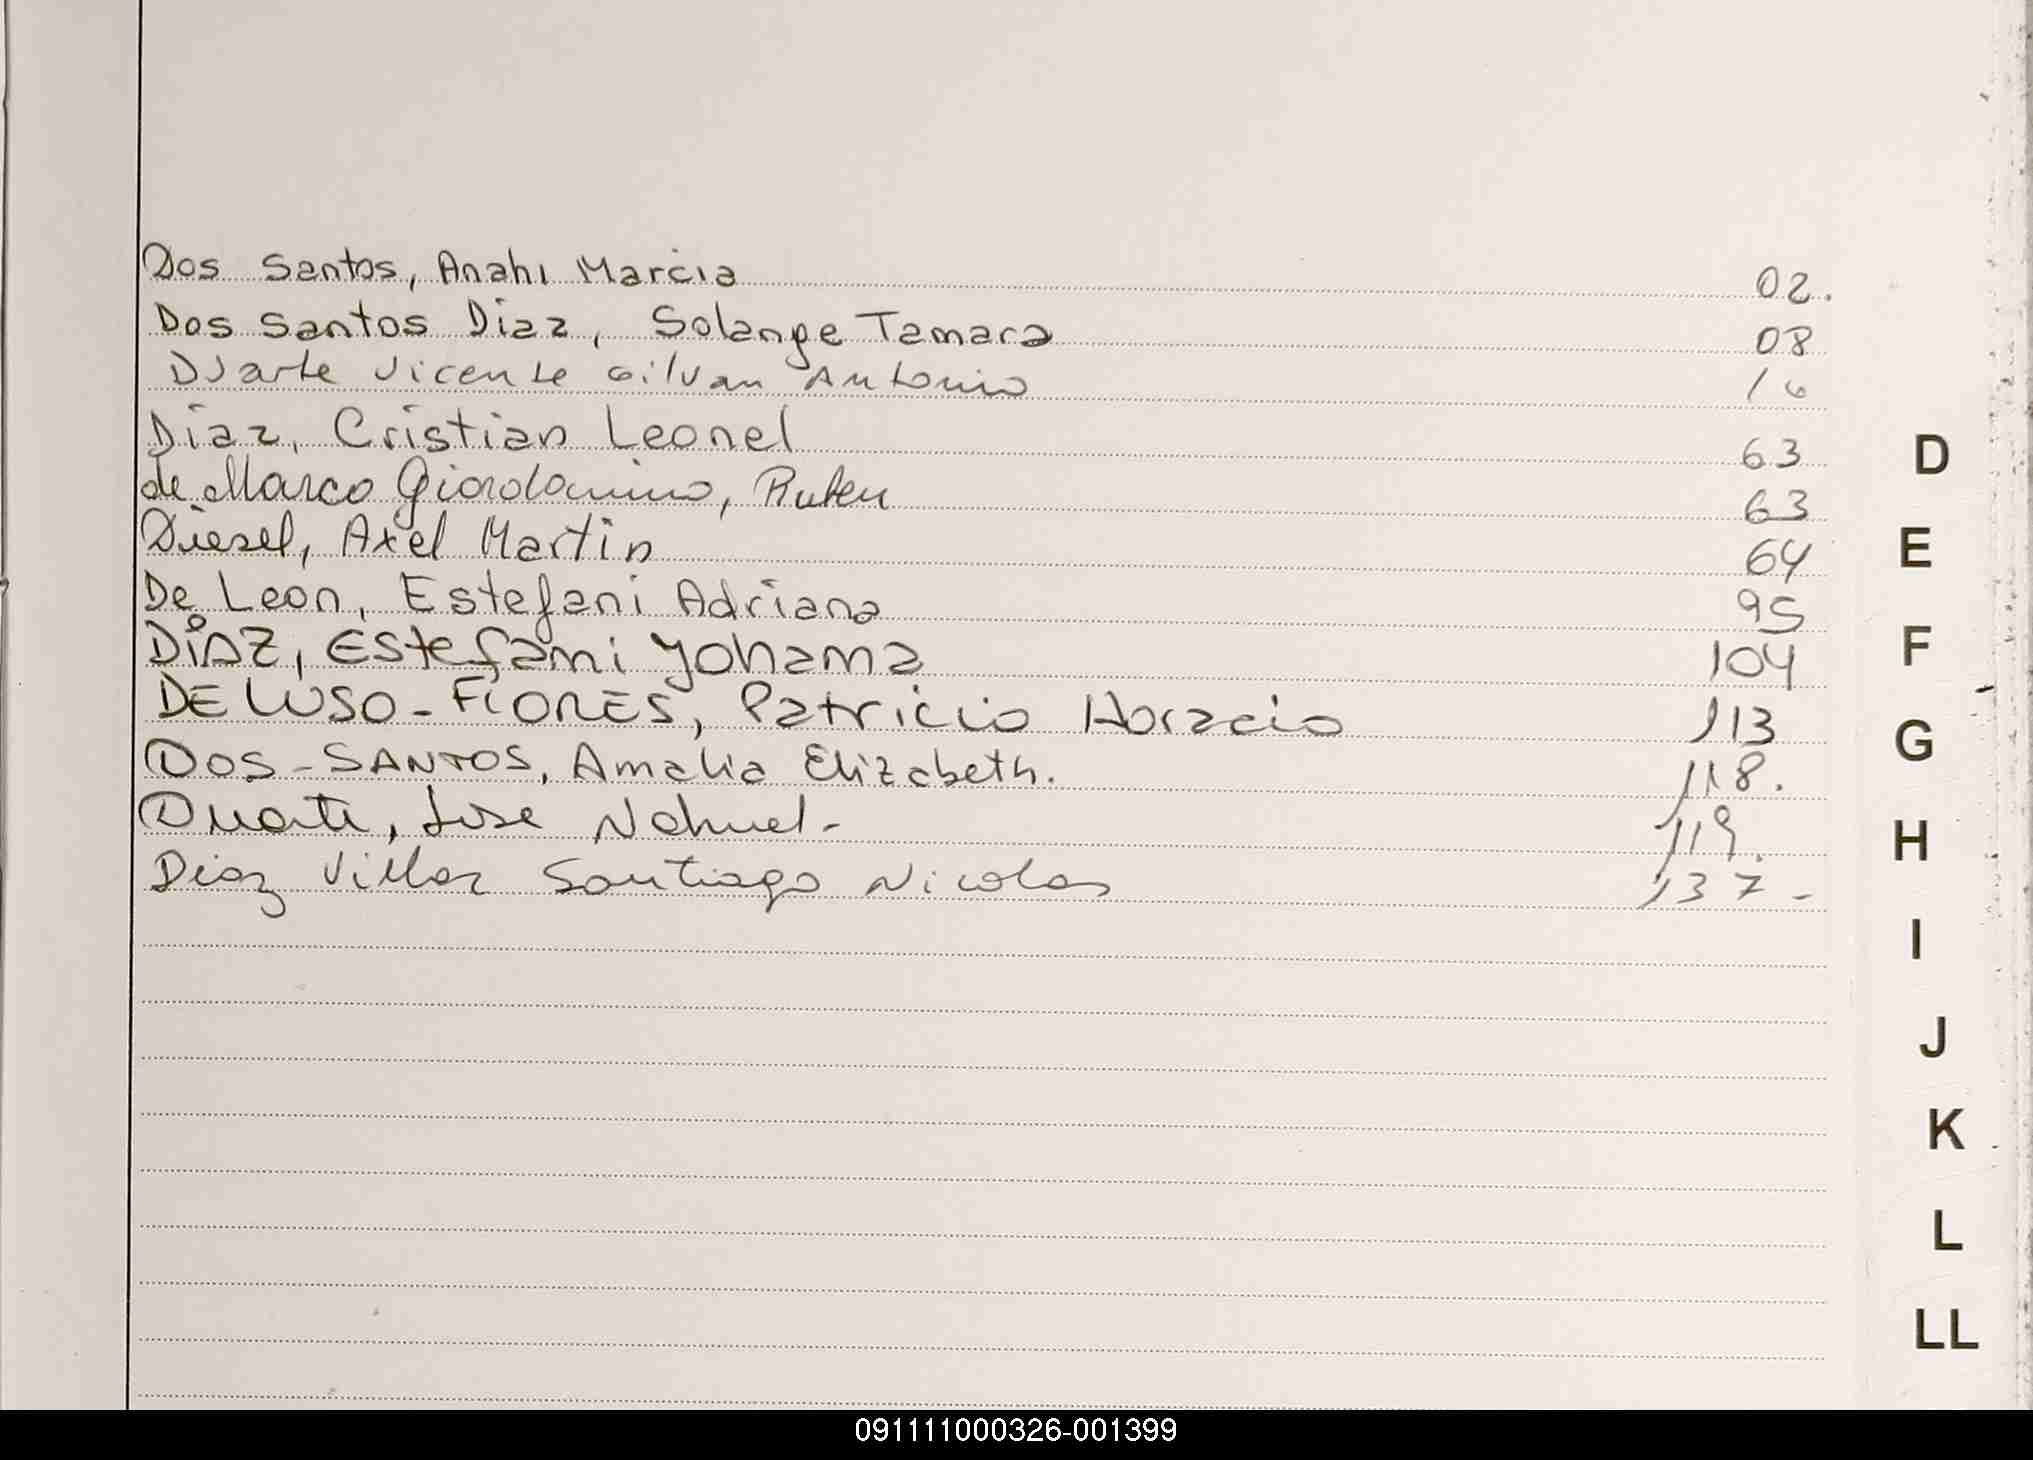 Dos Santos, Anahi Marcia 02.
Dos Santos Diaz, Solange Tamara 08
Duarte Vicente Gilvan Antonio 16
Diaz, Cristian Leonel 63
de Marco Giordanino, Ruben 63
Diesel, Axel Martin 64
De Leon, Estefani Adriana 95
DiAZ, Estefani Yohana 104
DE LUSO-FlORES, Patricio Horacio 113
DOS-SANTOS, Amalia Elizabeth. 118.
Duarte, Jose Nahuel- 119.
Diaz Villar Santiago Nicolas 137-
D
E
F
G
H
I
J
K
L
LL
091111000326-001399